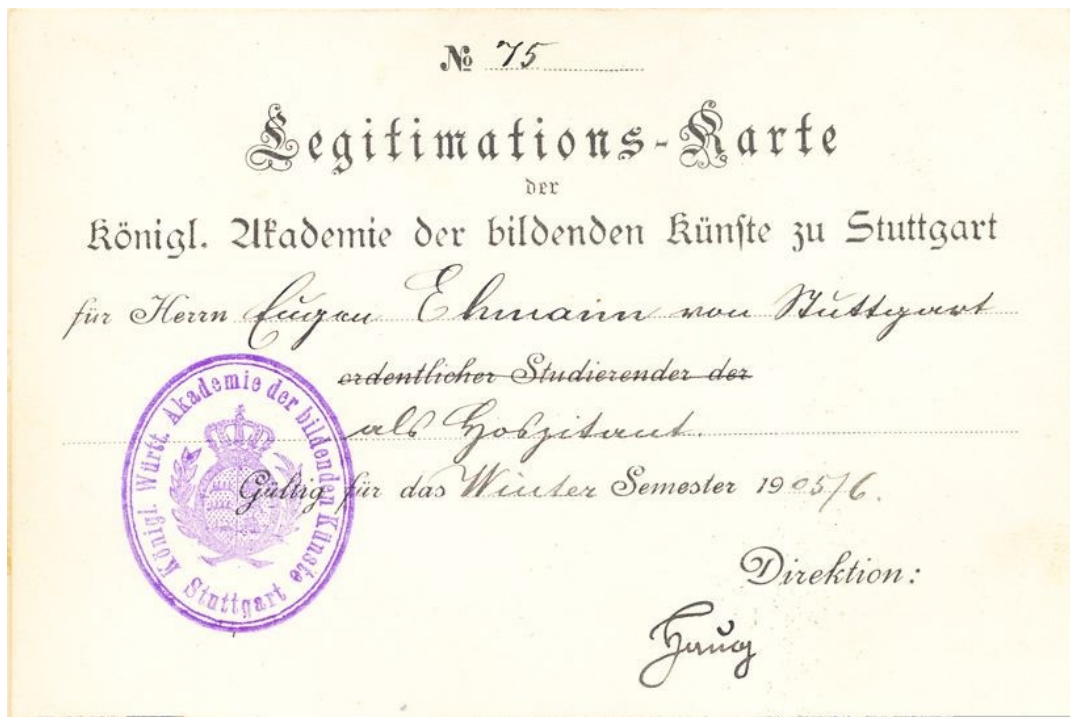 № 75
Legitimations-Karte
der
Königl. Akademie der bildenden Künste zu Stuttgart
für Herrn Eugen Ehmann von Stuttgart
ordentlicher Studierender der
als Hospitant.
Gültig für das Winter Semester 1905/6.
Direktion:
Haug
Königl. Württ. Akademie der bildenden Künste
Stuttgart